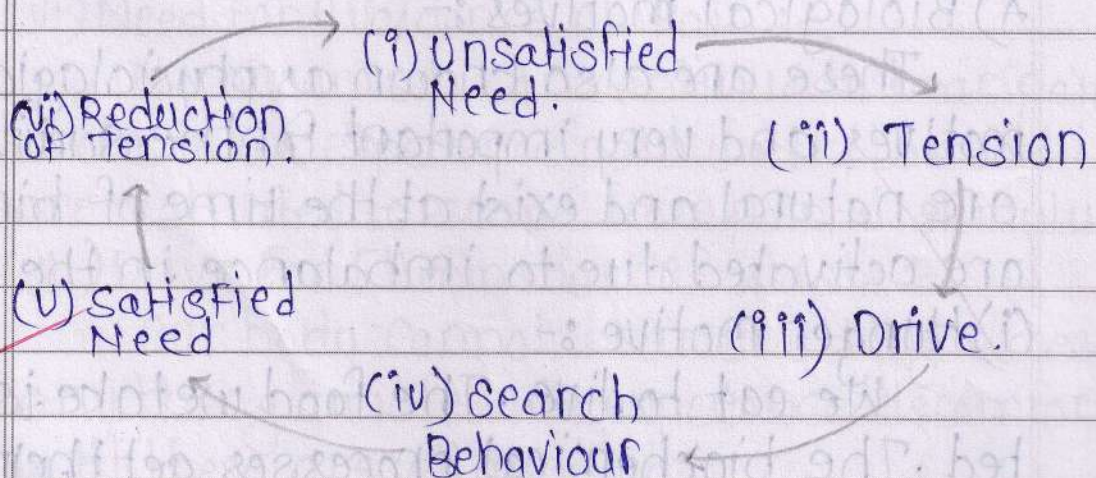 (i) Unsatisfied
Need.
(ii) Tension
(iii) Drive.
(iv) Search
Behaviour
(v) Satisfied
Need
(vi) Reduction
of Tension.